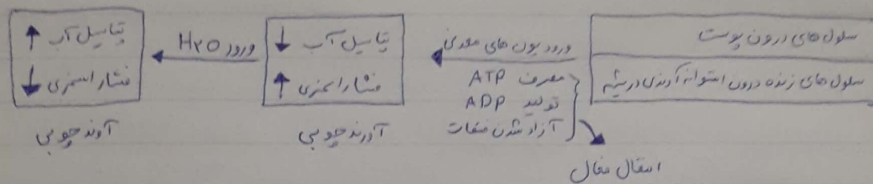 سلول های درون پوست
سلول های زنده درون استوانه آوندی در ریشه
ورود یون های معدنی
مصرف ATP
تولید ADP
آزاد شدن فسفات
انتقال فعال
پتانسیل آب ↓
فشار اسمزی ↑
آوند چوبی
ورود H۲O
پتانسیل آب ↑
فشار اسمزی ↓
آوند چوبی